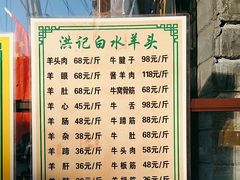 洪记白水羊头
羊头肉 68元/斤 牛腱子 98元/斤
羊眼 68元/斤 酱羊肉 118元/斤
羊肚 68元/斤 牛窝骨筋 68元/斤
羊心 45元/斤 牛舌 98元/斤
羊肠 48元/斤 牛蹄筋 58元/斤
羊杂 38元/斤 牛肚 58元/斤
羊蹄 36元/斤 牛头肉 58元/斤
羊肝 36元/斤 牛板筋 48元/斤